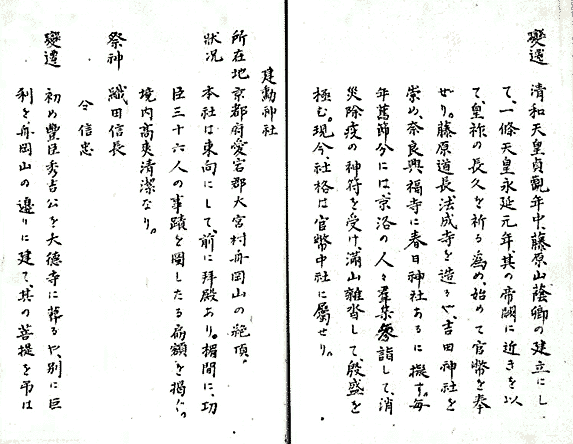 變遷
清和天皇貞觀年中、藤原山蔭卿の建立にし
て、一條天皇永延元年、其の帝闕に近きを以
て、皇祚の長久を祈る爲め、始めて官幣を奉
せり。藤原道長法成寺を造るや、吉田神社を
崇め、奈良興福寺に春日神社あるに擬す。毎
年舊節分には、京洛の人々羣集參詣して、消
災除疫の神符を受け、滿山雜沓して、殷盛を
極む。現今、社格は官幣中社に屬せり。
建勳神社
所在地 京都府愛宕郡大宮村舟岡山の絶頂。
狀况 本社は東向にして、前に拜殿あり。楣間に、功
臣三十六人の事蹟を圖したる扁額を揭ぐ。
境内高爽清潔なり。
祭神 織田信長
仝 信忠
變遷 初め豐臣秀吉公を大德寺に葬るや、別に巨
利を舟岡山の邊りに建て、其の菩提を弔は